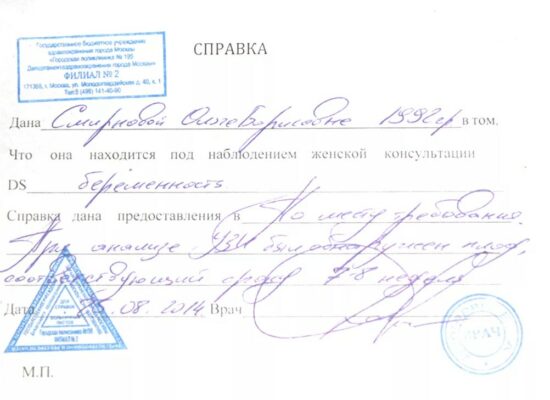 Государственное бюджетное учреждение
здравоохранения города Москвы
«Городская поликлиника № 195
Департамента здравоохранения города Москвы»
ФИЛИАЛ № 2
г. Москва, ул. Молодогвардейская д. 40, к. 1
Тел: 8 (495) 141-40-90
СПРАВКА
Дана Смирновой Ольге Борисовне 1992 гр в том.
Что она находится под наблюдением женской консультации
DS беременность
Справка дана предоставления в По месту требования.
При анализе УЗИ был обнаружен плод,
соответствующий сроку 7-8 недель
Дата 08.2014 Врач
ДЛЯ
СПРАВОК
ЛИСТКОВ
ФИЛИАЛ № 2
ВРАЧ
М.П.